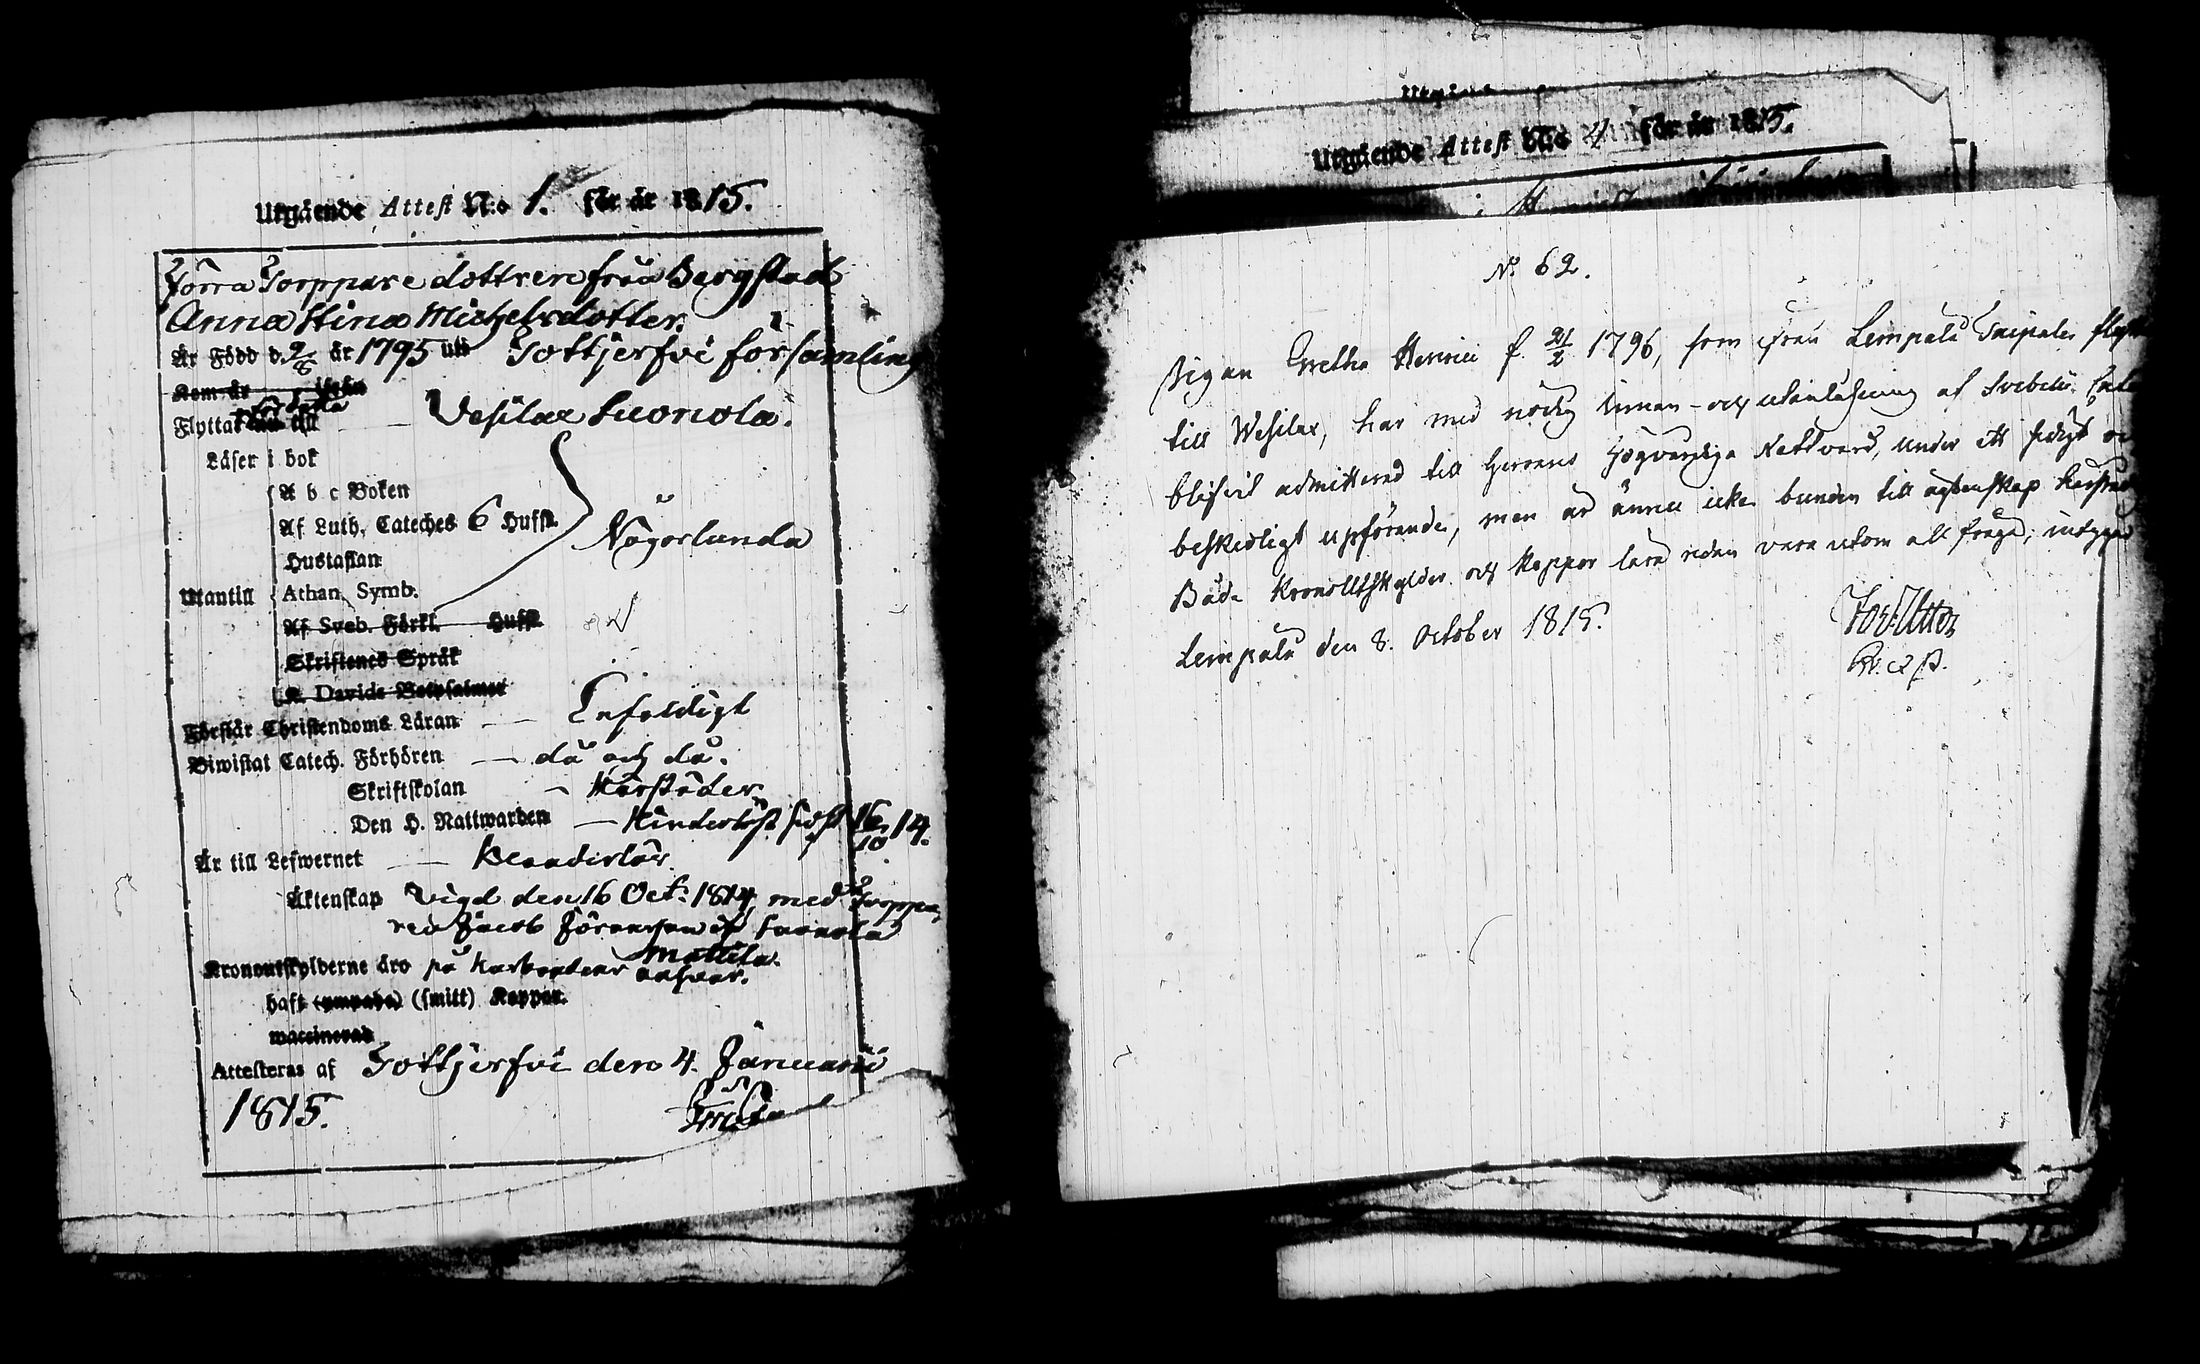 Utgående Attest N:o 1. för år 1815.
Förra Torppare dottren från Bergstad
Anna Stina Michelsdotter.
Är Född d. 2/8 år 1795 uti Tottjerfvi församling
Kom år ifrån
Flyttat till Vesilax Suonola.
Läser i bok
A b c Boken
Af Luth. Cateches 6 Hufst.
Någorlunda
Hustaflan
Utantill Athan. Symb.
Af Sveb. Förkl. Hufst.
Skriftenes Språk
K. Davids Botpsalmer
Förstår Christendoms Läran Enfaldigt
Biwistat Catech. Förhören då och då.
Skriftskolan
Den H. Nattwarden Hinderlöst sidst 16/10 14.
Är till Lefwernet
Äktenskap Vigd den 16 Oct: 1814 med Torppa-
ren Jacob Göransson Suonola
Mattila.
Kronoutskylderne äro på Husbondens ansvar.
haft (ympade) (smitt) Koppor.
waccinerad
Attesteras af Tottjerfvi den 4. Januarii
1815.
Utgående Attest N:o 4 för år 1815.
N:o 62.
Pigan Gretha Henrici f. 21/2 1796, som ifrån Lempälä Kuipala
till Wesilax, har med nödig innan- och utanläsning af Svebelii
blifvit admitterad till Herrans Högvärdiga Nattvard, under ett sedigt
beskedligt upförande, men är ännu icke bunden till ägtenskap
Både Kronoutskylder och koppor lära redan vara utom all fråga; intygar
Lempälä den 8. October 1815.